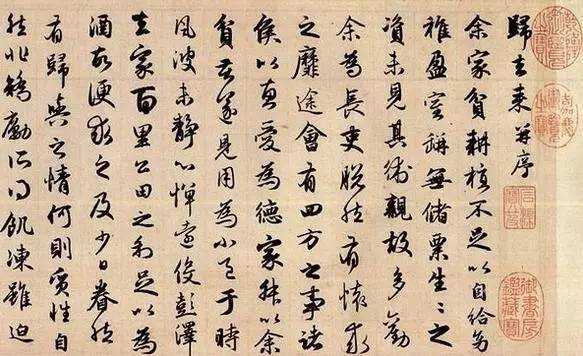 歸去來并序
余家貧耕植不足以自給幼
稚盈室缾無儲粟生生之
資未見其術親故多勸
余為長吏脫然有懷求
之靡途會有四方之事諸
侯以惠愛為德家叔以余
貧苦遂見用為小邑于時
風波未靜心憚遠役彭澤
去家百里公田之利足以為
酒故便求之及少日眷然
有歸與之情何則質性自
然非矯勵所得飢凍雖迫
嘉慶御覽之寶
石渠寶笈
御書房鑑藏寶